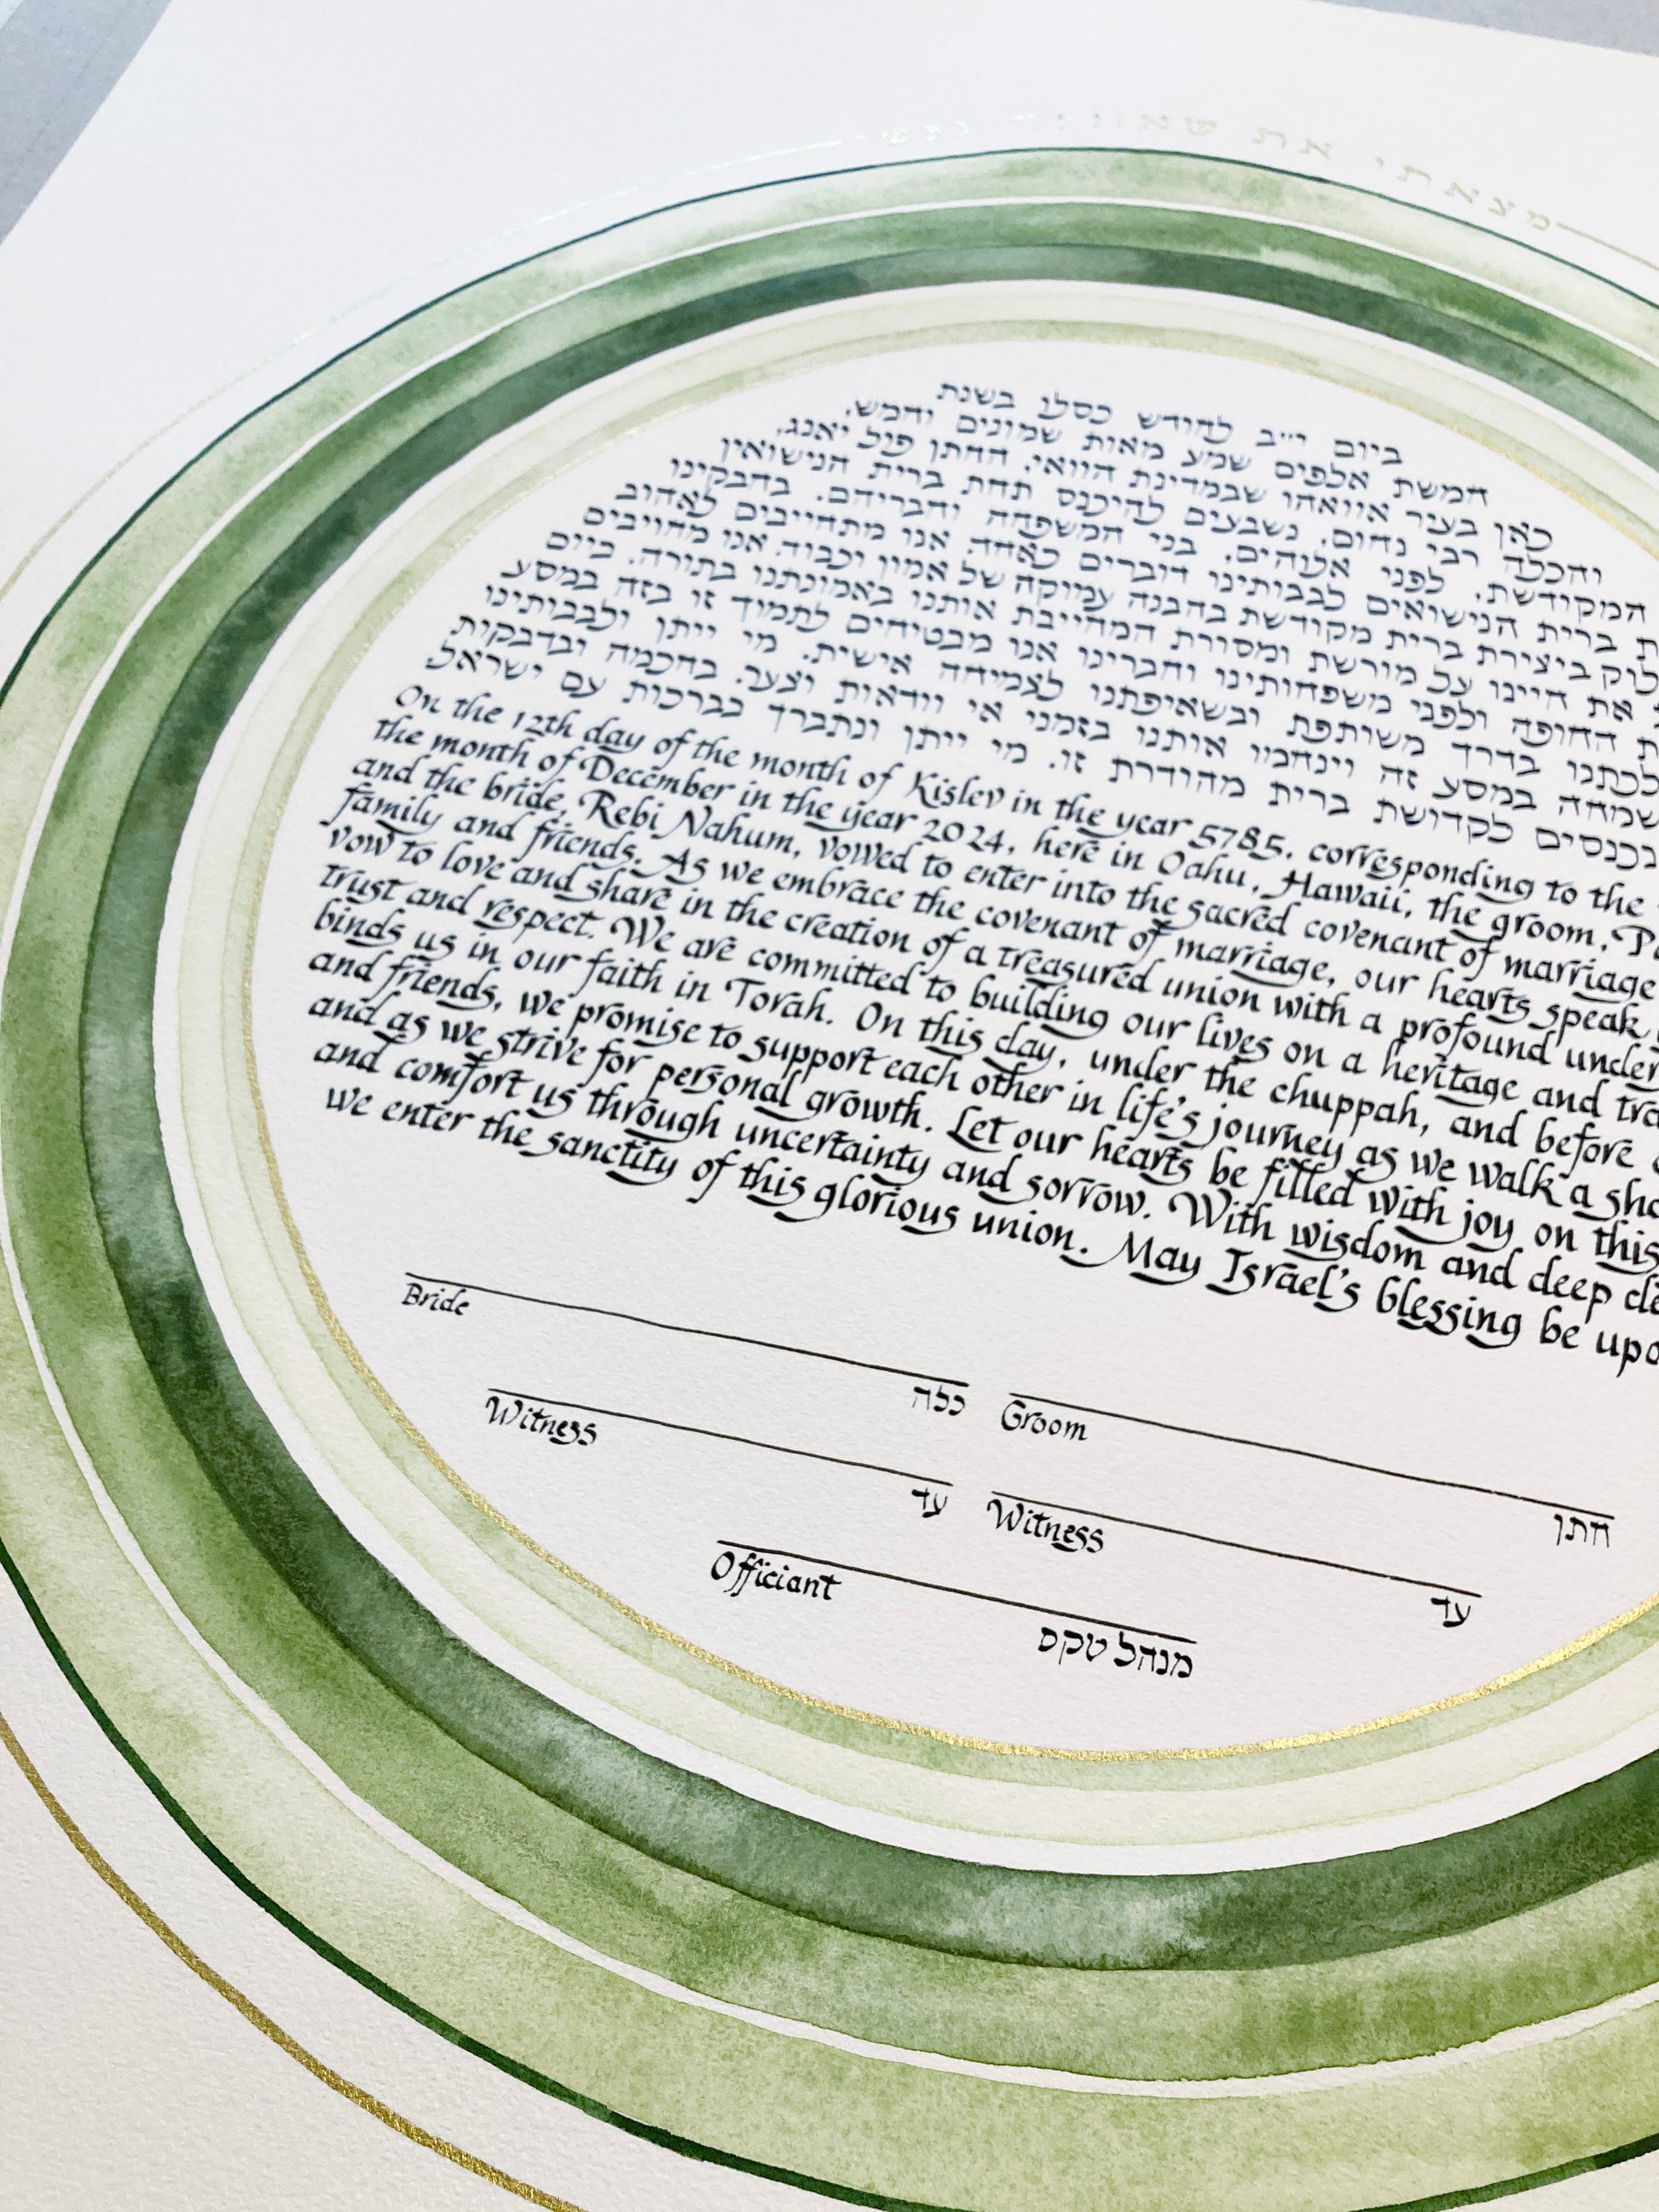 מצאתי את שאהבה נפשי
ביום י״ב לחודש כסלו בשנת
חמשת אלפים שמע מאות שמונים וחמש,
כאן בעיר אוואהו שבמדינת הוואי, החתן פול יאנג,
והכלה רבי נחום, נשבעים להיכנס תחת ברית הנישואין
המקודשת, לפני אלוהים, בני המשפחה והבריהם. בהבקינו
ברית הנישואים לבבותינו דוברים כאחד. אנו מתחייבים לאהוב
ביצירת ברית מקודשת בהבנה עמוקה של אמון וכבוד. אנו מחוייבים
את חיינו על מורשת ומסורת המחייבת אותנו באמונתנו בתורה. ביום
החופה ולפני משפחותינו וחברינו אנו מבטיחים לתמוך זו בזה במסע
לכתנו בדרך משותפת ובשאיפתנו לצמיחה אישית. מי ייתן ולבבותינו
שמחה במסע זה וינחמו אותנו בזמני אי וודאות וצער. בחכמה ובדבקות
נכנסים לקדושת ברית מהודרת זו. מי ייתן ונתברך בברכות עם ישראל
On the 12th day of the month of Kislev in the year 5785, corresponding to the
the month of December in the year 2024, here in Oahu, Hawaii, the groom,
and the bride, Rebi Nahum, vowed to enter into the sacred covenant of marriage
family and friends. As we embrace the covenant of marriage, our hearts speak
vow to love and share in the creation of a treasured union with a profound
trust and respect. We are committed to building our lives on a heritage and
binds us in our faith in Torah. On this day, under the chuppah, and before
and friends, we promise to support each other in life's journey as we walk a
and as we strive for personal growth. Let our hearts be filled with joy on this
and comfort us through uncertainty and sorrow. With wisdom and deep
we enter the sanctity of this glorious union. May Israel's blessing be
Bride כלה Groom חתן
Witness עד Witness עד
Officiant מנהל טקס